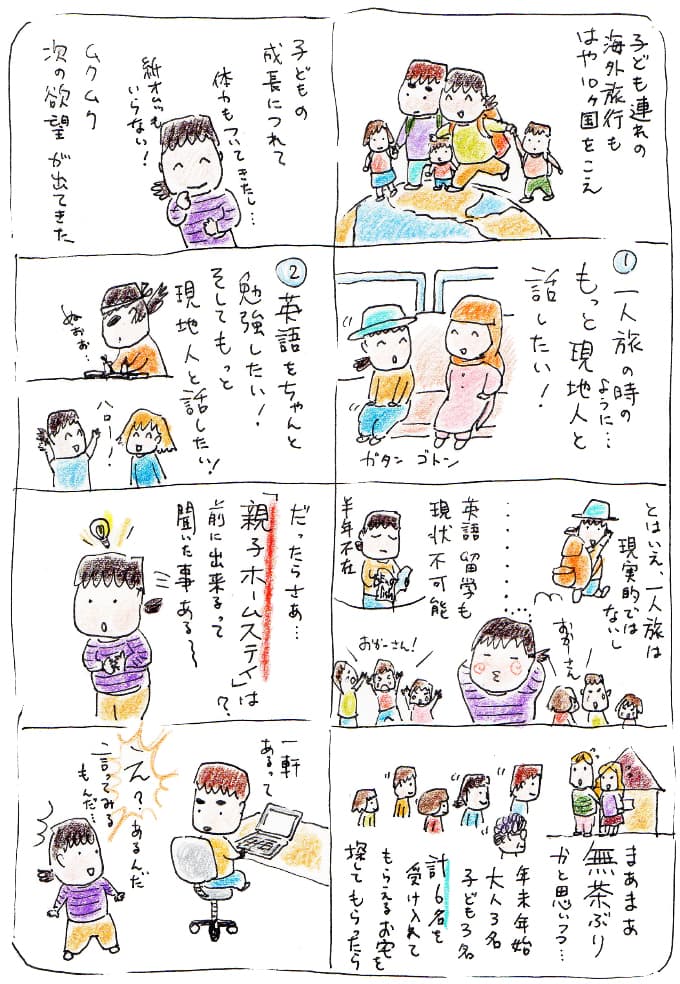 子ども連れの
海外旅行も
はや10ヶ国をこえ
子どもの
成長につれて
体力もついてきたし…
紙オムツも
いらない！
ムクムク
次の欲望が出てきた
① 一人旅の時の
ように…
もっと現地人と
話したい！
ガタン ゴトン
② 英語をちゃんと
勉強したい！
そしてもっと
現地人と話したい！
ぬぉぉ…
ハロー！
とはいえ、一人旅は
現実的では
ないし
おかーさん
英語留学も
現状不可能
半年不在
おかーさん！
だったらさぁ…
「親子ホームステイ」は
前に出来るって
聞いた事ある〜？
まあまあ
無茶ぶり
かと思いつつ…
年末年始
大人3名
子ども3名
計6名を
受け入れて
もらえるお宅を
探してもらったら
一軒
あるって
えっ？あるんだ
言ってみる
もんだ…